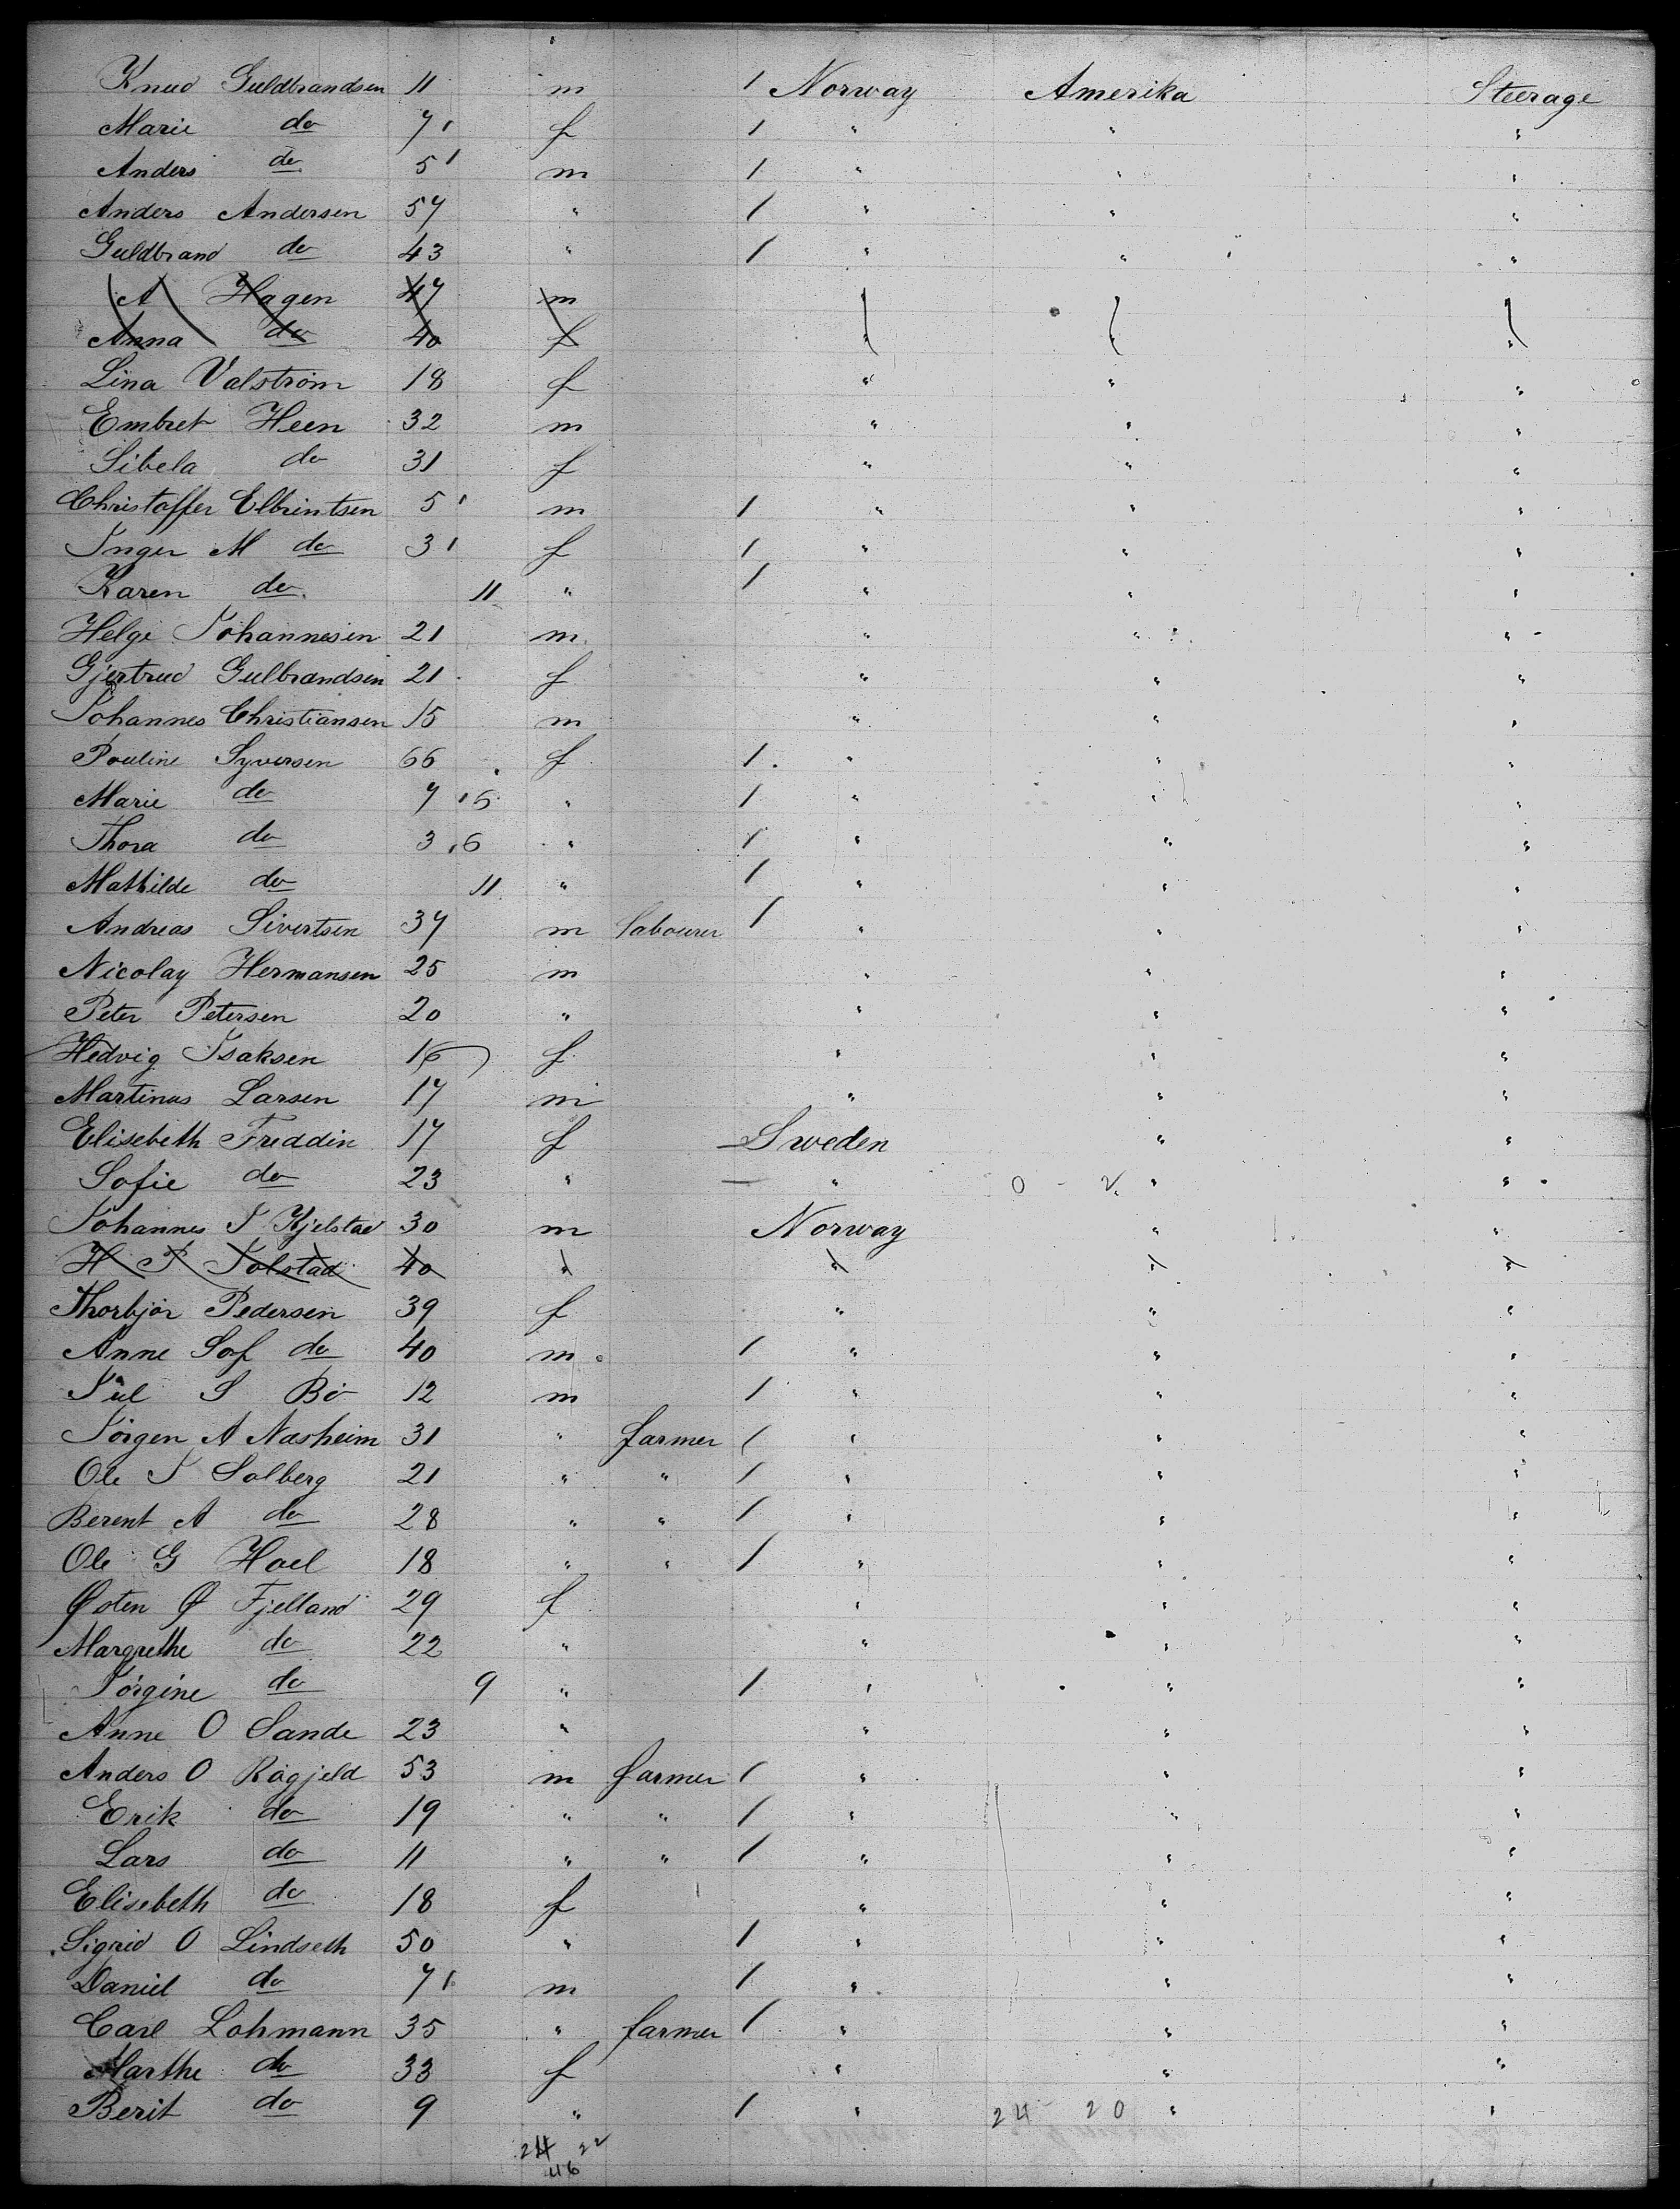 Knud Guldbrandsen 11 m 1 Norway Amerika Steerage
Marie do 7 f 1 " " "
Anders do 5 m 1 " " "
Anders Andersen 57 " 1 " " "
Guldbrand do 43 " 1 " " "
A Hagen 47 m " " "
Anna do 40 f " " "
Lina Valstrøm 18 f " " "
Embret Heen 32 m " " "
Sibela do 31 f " " "
Christoffer Elbrintsen 5 m 1 " " "
Inger M do 3 f 1 " " "
Karen do 11 " 1 " " "
Helge Johannesen 21 m " " "
Gjertrud Gulbrandsen 21 f " " "
Johannes Christiansen 15 m " " "
Pouline Syversen 66 f 1 " " "
Marie do 7 6 " 1 " " "
Thora do 3 6 " 1 " " "
Mathilde do 11 " 1 " " "
Andreas Sivertsen 37 m labourer 1 " " "
Nicolay Hermansen 25 m " " "
Peter Petersen 20 " " " "
Hedvig Isaksen 16 f " " "
Martinus Larsen 17 m " " "
Elisebeth Freddin 17 f Sweden " "
Sofie do 23 " " 0 - 2 " "
Johannes J Kjelstad 30 m Norway " "
H P Jolstad 40 " " " "
Thorbjør Pedersen 39 f " " "
Anne Sof do 40 m 1 " " "
Jul S Bø 12 m 1 " " "
Jörgen A Nasheim 31 " farmer 1 " " "
Ole J Solberg 21 " " 1 " " "
Berent A do 28 " " 1 " " "
Ole G Hoel 18 " " 1 " " "
Østen Ø Fjelland 29 f " " "
Margrethe do 22 " " " "
Jörgine do 9 " 1 " " "
Anne O Sande 23 " " " "
Anders O Rögjeld 53 m farmer 1 " " "
Erik do 19 " " 1 " " "
Lars do 11 " " 1 " " "
Elisebeth do 18 f " " "
Sigrid O Lindseth 50 " 1 " " "
Daniel do 7 m 1 " " "
Carl Lohmann 35 " farmer 1 " " "
Marthe do 33 f " " "
Berit do 9 " 1 " 24 20 " "
24 22
46